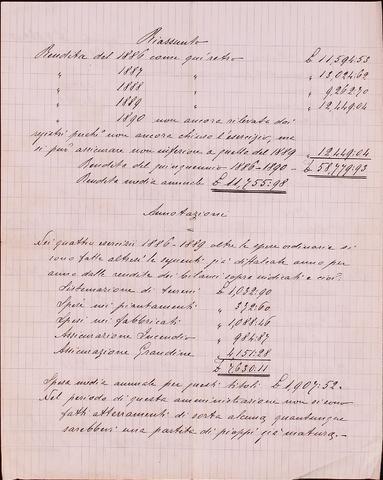 Riassunto
Rendita del 1886 come qui retro £ 11,594.53
" 1887 " " 13,024.62
" 1888 " " 9,262.70
" 1889 " " 12,449.04
" 1890 non ancora rilevata dai
registri perché non ancora chiuso l'esercizio, ma
si può assicurare non inferiore a quella del 1889 " 12,449.04
Rendita del quinquennio 1886-1890 - £ 58,779.93
Rendita media annuale £ 11,755.98
Annotazione
Nei quattro esercizi 1886-1889 oltre le spese ordinarie si
sono fatte altresì le seguenti già difalcate anno per
anno dalle rendite dei bilanci sopra indicati e cioè:
Sistemazione di terreni £ 1,032.90
Spese nei piantamenti " 372.60
Spesi nei fabbricati " 1,088.46
Assicurazione Incendio " 984.87
Assicurazione Grandine " 4,151.28
£ 7,630.11
Spesa media annuale per questi titoli £ 1,907.52.
Nel periodo di questa amministrazione non si sono
fatti atterramenti di sorta alcuna quantunque
sarebbevi una partita di pioppi già matura. -